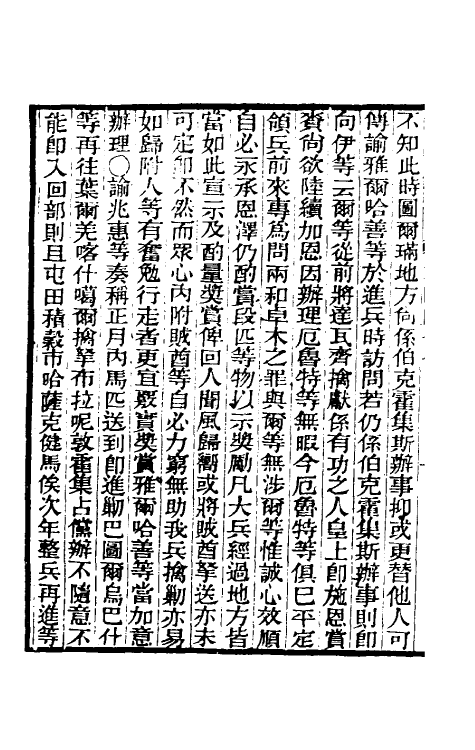 不知此時圖爾璊地方尙係伯克霍集斯辦事抑或更替他人可
傳諭雅爾哈善等於進兵時訪問若仍係伯克霍集斯辦事則卽
向伊等云爾等從前將達瓦齊擒獻係有功之人皇上卽施恩賞
賚尙欲陸續加恩因辦理厄魯特等無暇今厄魯特等俱已平定
領兵前來專爲問兩和卓木之罪與爾等無涉爾等惟誠心效順
自必永承恩澤仍酌賞段匹等物以示奬勵凡大兵經過地方皆
當如此宣示及酌量奬賞俾回人聞風歸嚮或將賊酋拏送亦未
可定卽不然而眾心內附賊酋等自必力窮無助我兵擒勦亦易
如歸附人等有奮勉行走者更宜覈實奬賞雅爾哈善等當加意
辦理○諭兆惠等奏稱正月內馬匹送到卽進勦巴圖爾烏巴什
等再往葉爾羌喀什噶爾擒拏布拉呢敦霍集占儻辦不隨意不
能卽入回部則且屯田積穀市哈薩克健馬俟次年整兵再進等